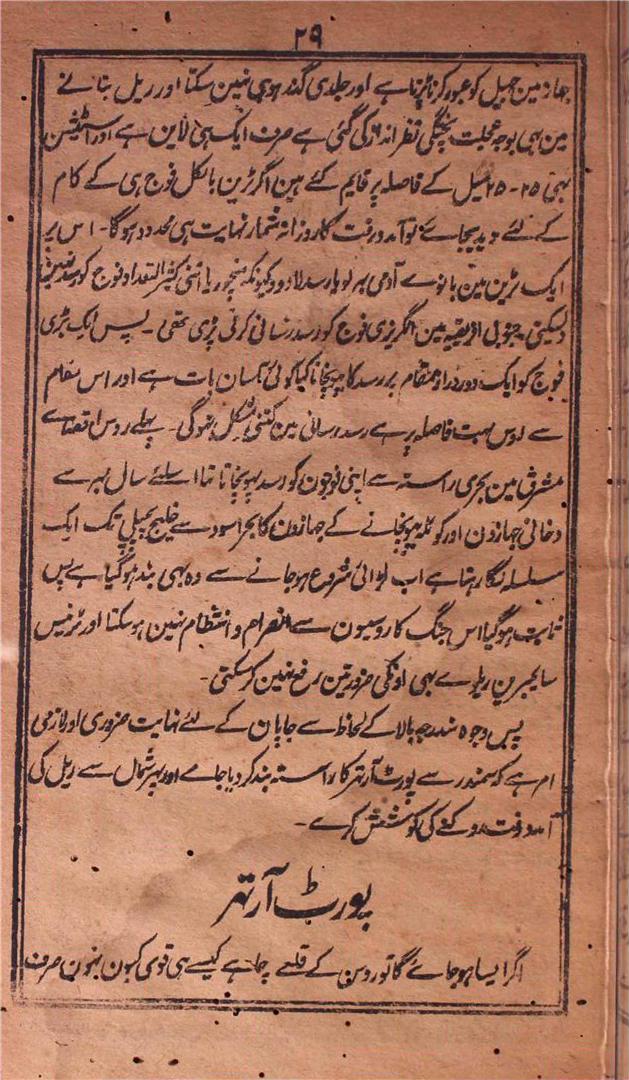 ۲۹
جہاز مین جھیل کو عبور کرنا پڑتا ہے اور جلدی گذر ہو ہی نہین سکتا اور ریل بنانے
مین بہی بوجہ عجلت پختگی نظر انداز کی گئی ہے صرف ایک ہی لاین ہے اور اسٹیشن
بہی ۲۵-۲۵ میل کے فاصلہ پر قایم کئے ہین اگر ٹرین بالکل فوج ہی کے کام
کے لئے دیدیجائے تو آمدورفت کا روزانہ شمار نہایت ہی محدود ہوگا۔ اس پر
ایک ٹرین مین بانوے آدمی بہر لو یا رسد لادو کیونکہ منچوریا اتنی کثیر التعداد فوج کو رسد نہین
دیسکتی۔ جنوبی افریقہ مین انگریزی فوج کو رسد رسانی کرنی پڑی تھی۔ پس ایک بڑی
فوج کو ایک دور دراز مقام پر رسد کا پہونچانا کیا کوئی آسان بات ہے اور اس مقام
سے روس بہت فاصلہ پر ہے رسد رسانی مین کتنی مشکل نہوگی۔ پہلے روس اقصاے
مشرق مین بحری راستہ سے اپنی فوجون کو رسد پہونچاتا تہا اسلئے سال بہر سے
دخانی جہازون اور کوئلہ پہونچانے کے جہازون کا بحر اسود سے خلیج پچیلی تک ایک
سلسلہ لگا رہتا ہے اب لڑائی شروع ہو جانے سے وہ بہی بند ہوگیا ہے پس
ثابت ہوگیا اس جنگ کا روسیون سے انصرام و انتظام نہین ہو سکتا اور ٹرنیس
سایبیرین ریلوے بہی اونکی ضرورتین رفع نہین کر سکتی۔
پس وجوہ مندرجہ بالا کے لحاظ سے جاپان کے لئے نہایت ضروری اور لازمی
امر ہے کہ سمندر سے پورٹ آرتہر کا راستہ بند کر دیا جاے اور پہر شمال سے ریل کی
آمدورفت روکنے کی کوشش کرے۔
پورٹ آرتہر
اگر ایسا ہو جاے گا تو روس کے قلعے چاہے کیسے ہی قوی کیون نہون صرف